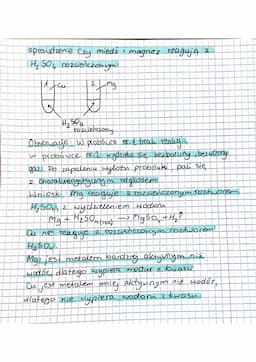 sprawdzenie czy miedź i magnez reagują z
H₂SO₄ rozcieńczonym
1 Cu 2 Mg
H₂SO₄
rozcieńczony
Obserwacje: W probówce nr.1 brak reakcji
w probówce nr.2 wydziela się bezbarwny, bezwonny
gaz. Po zapaleniu wylotu probówki, pali się
z charakterystycznym odgłosem.
Wnioski: Mg reaguje z rozcieńczonym roztworem
H₂SO₄, z wydzieleniem wodoru
Mg + H₂SO₄(roz) → MgSO₄ + H₂↑
Cu nie reaguje z rozcieńczonym roztworem
H₂SO₄.
Mg jest metalem bardziej aktywnym niż
wodór, dlatego wypiera wodór z kwasu.
Cu jest metalem mniej aktywnym niż wodór,
dlatego nie wypiera wodoru z kwasu.